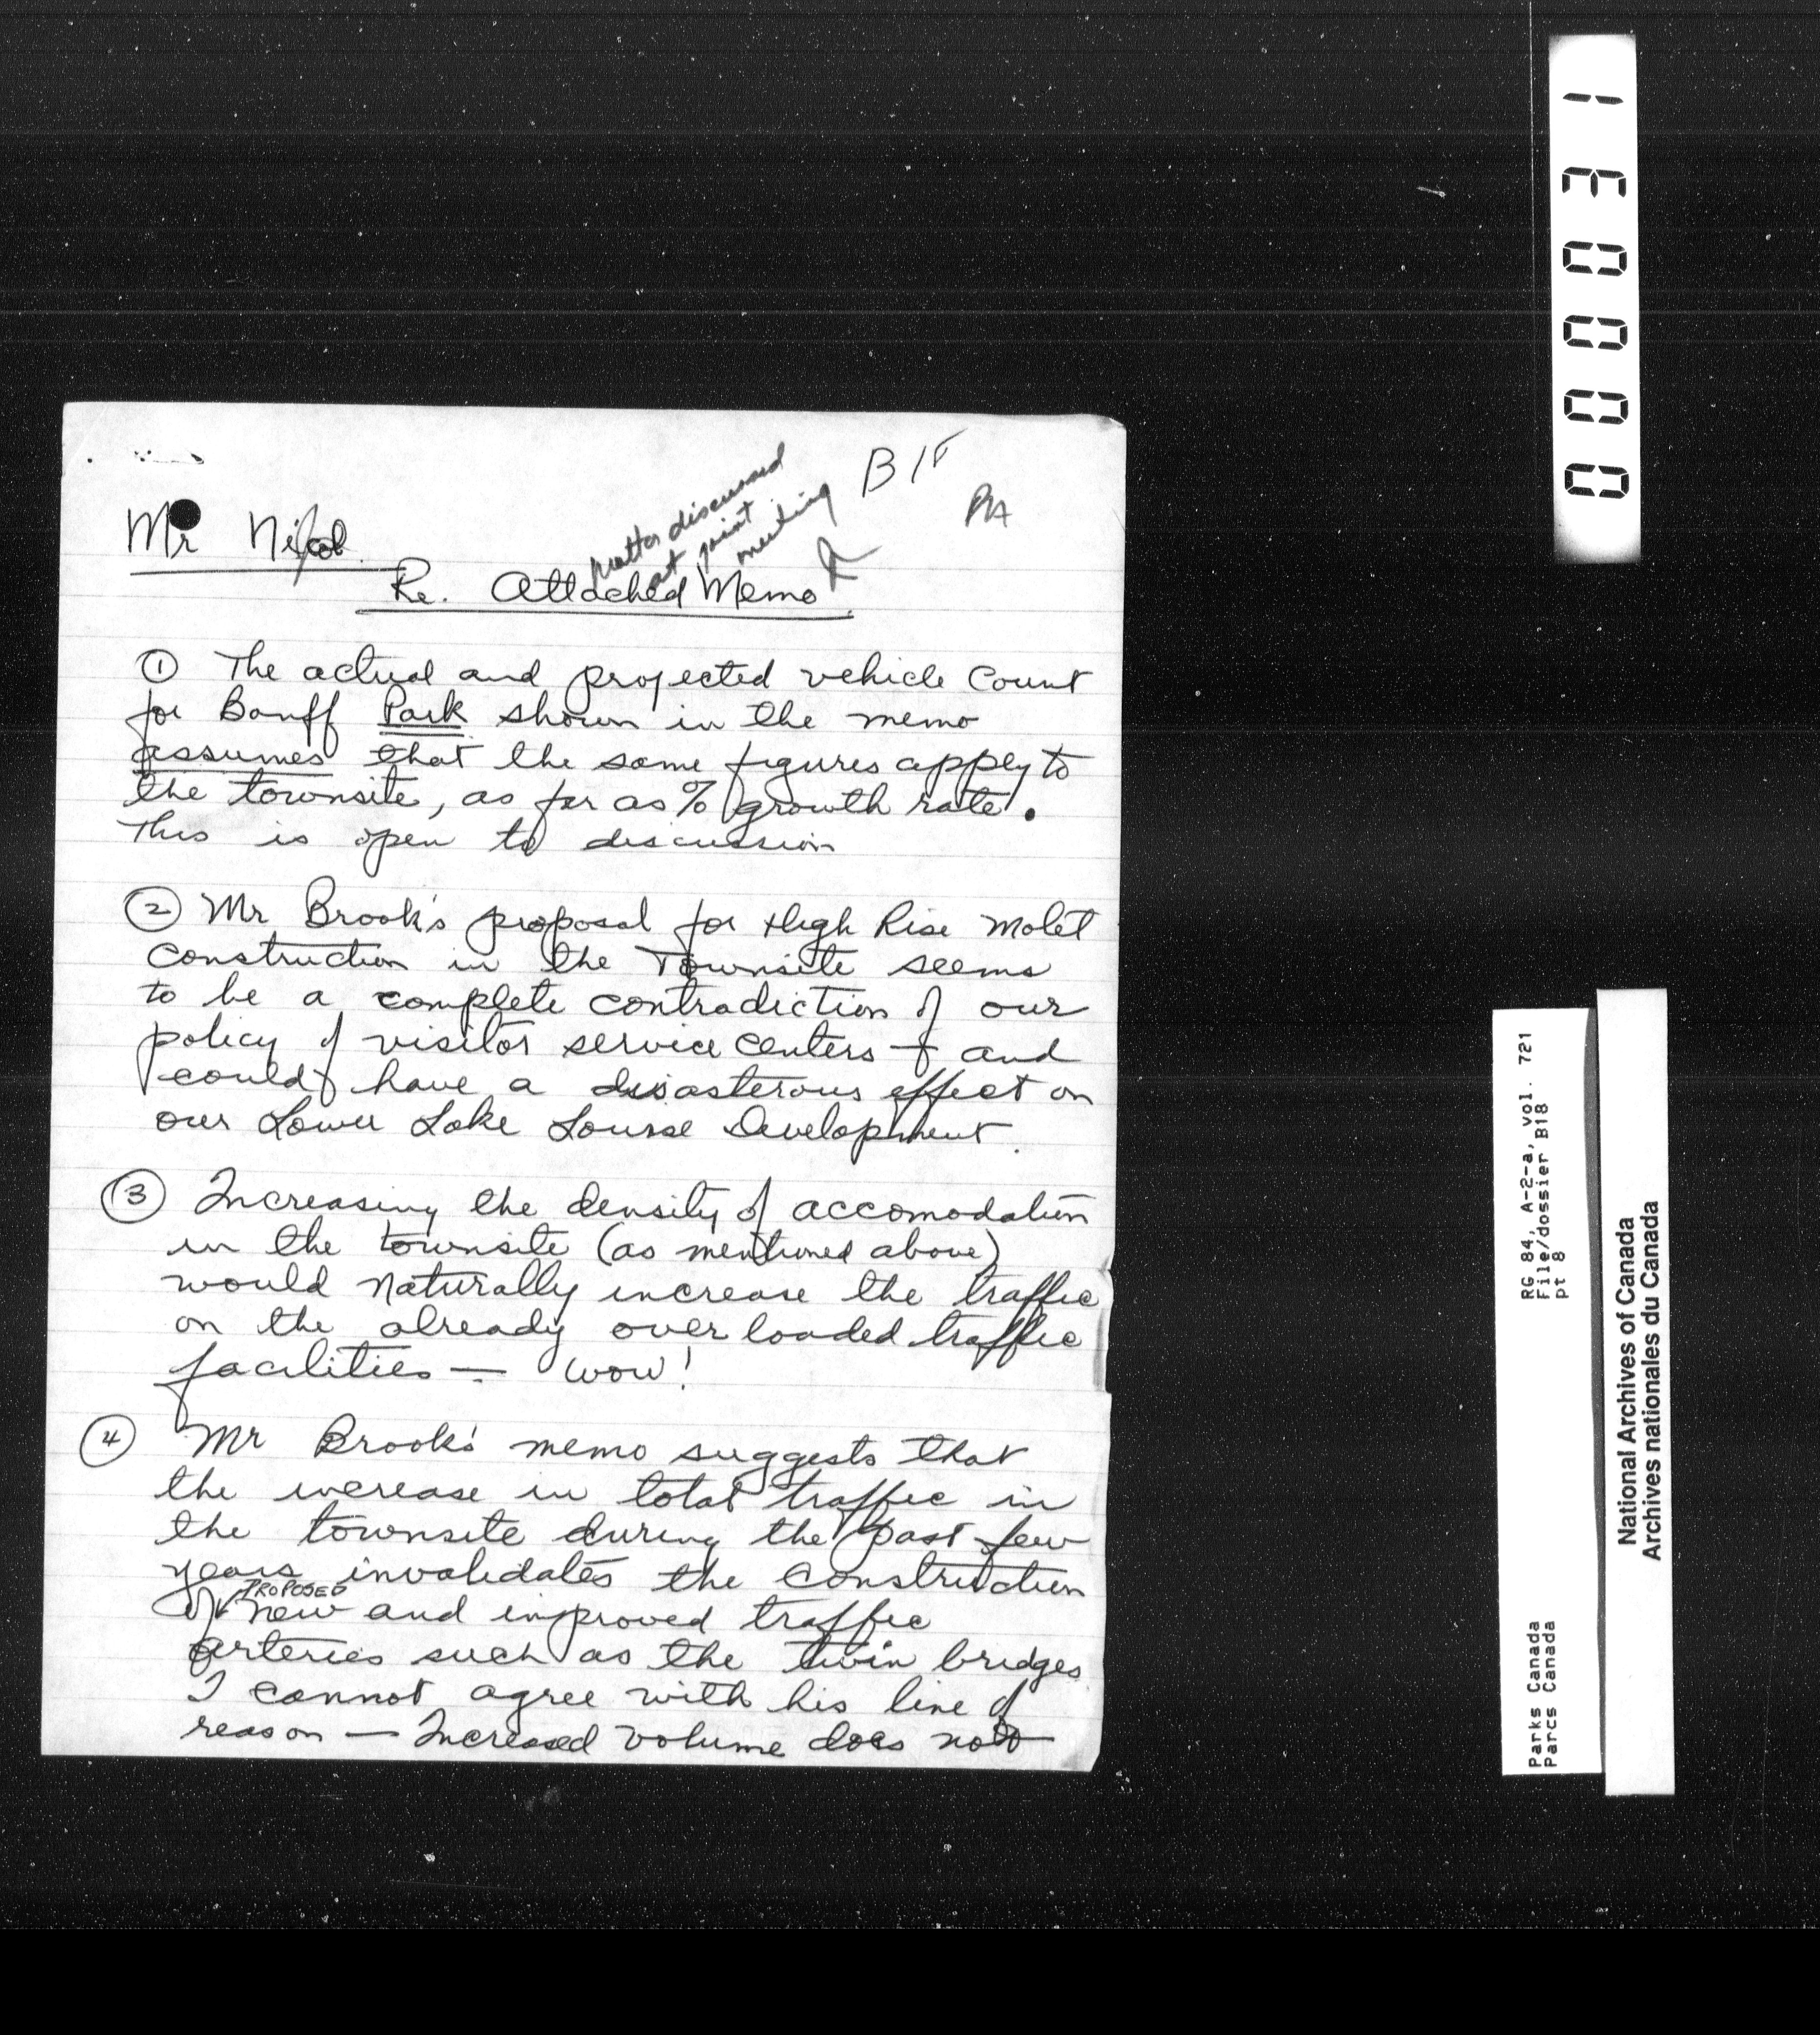 B18
PA
matter discussed
at joint
meeting
Mr Nicol
Re. Attached Memo
① The actual and projected vehicle count
for Banff Park shown in the memo
assumes that the same figures appley to
the townsite, as far as % growth rate.
This is open to discussion
② Mr Brook's proposal for High Rise Molet
construction in the Townsite seems
to be a complete contradiction of our
policy of visitor service centers + and
could have a disasterous effect on
our Lower Lake Louise Development.
③ Increasing the density of accomodation
in the townsite (as mentioned above)
would naturally increase the traffic
on the already over loaded traffic
facilities — wow!
④ Mr Brook's memo suggests that
the increase in total traffic in
the townsite during the past few
years invalidates the construction
of PROPOSED new and improved traffic
arteries such as the twin bridges
I cannot agree with his line of
reason — Increased volume does not
000031
RG 84, A-2-a, vol. 721
File/dossier B18
pt 8
Parks Canada
Parcs Canada
National Archives of Canada
Archives nationales du Canada